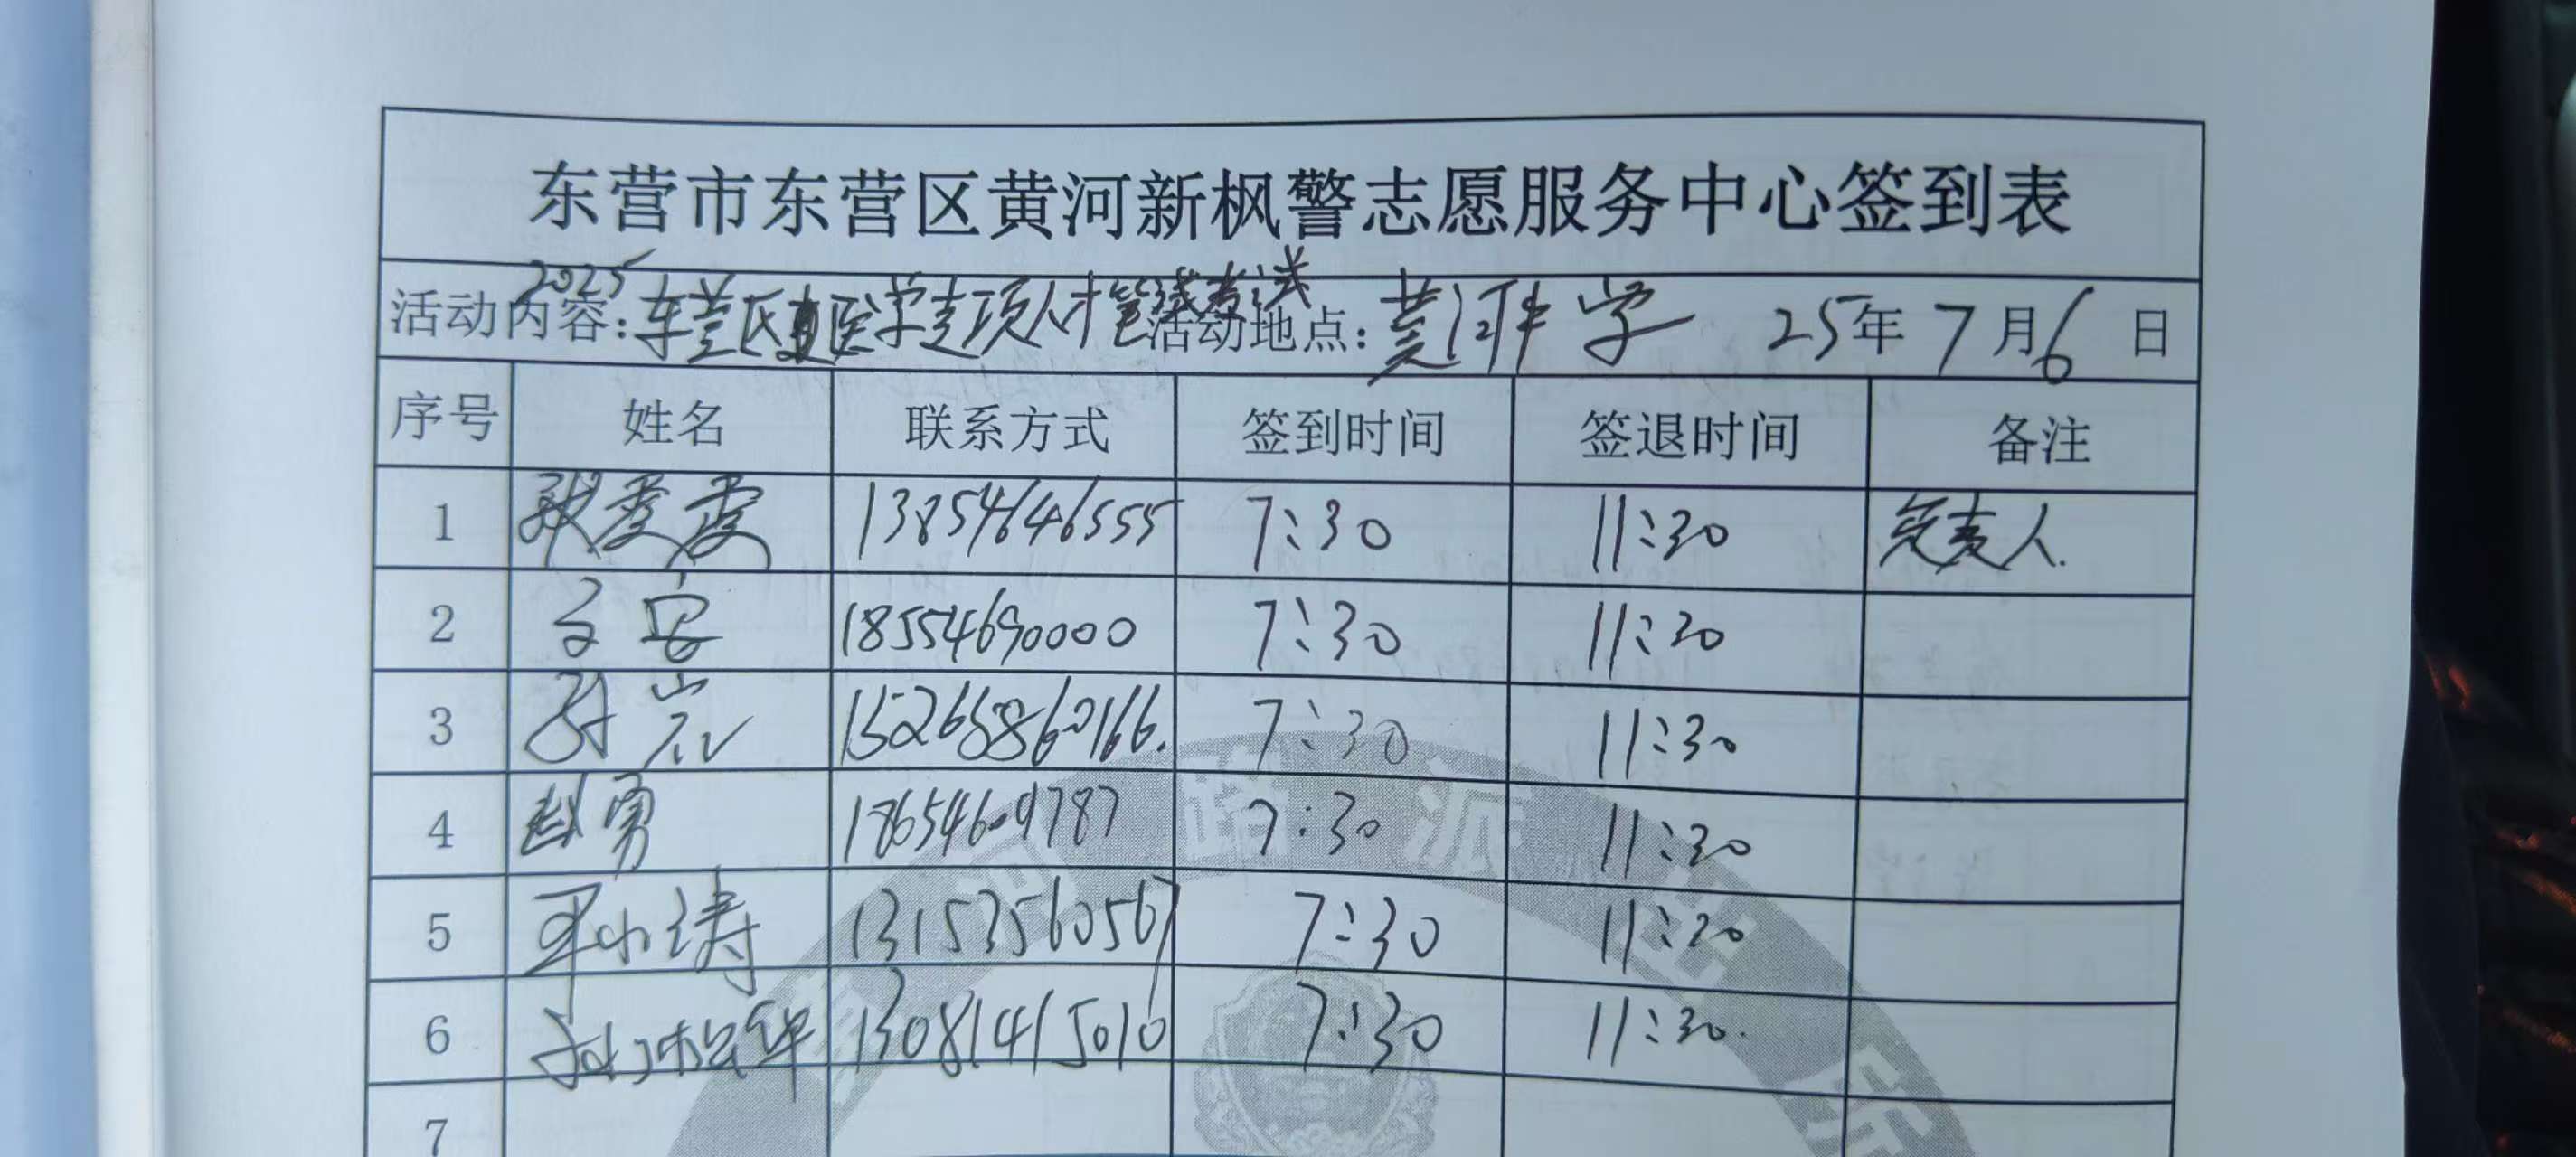 东营市东营区黄河新枫警志愿服务中心签到表
活动内容: 2025东营区直医学专项人才笔试考试 活动地点: 黄河中学 25年7月6日
序号 姓名 联系方式 签到时间 签退时间 备注
1 张霞霞 13854646555 7:30 11:30 负责人.
2 18554690000 7:30 11:30
3 孙岩 152668860166. 7:30 11:30
4 赵勇 18654609787 7:30 11:30
5 小涛 13153560567 7:30 11:30
6 松华 13081415010 7:30 11:30.
7
路 派 出 所